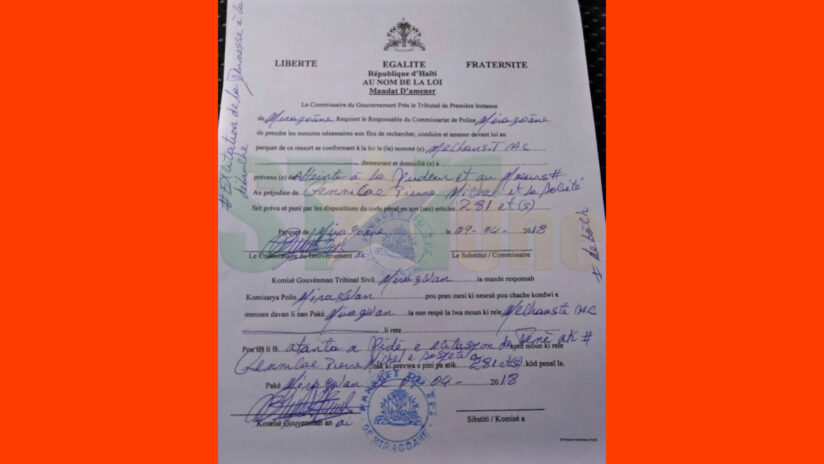 LIBERTE EGALITE FRATERNITE
République d'Haïti
AU NOM DE LA LOI
Mandat D'amener
Le Commissaire du Gouvernement Près le Tribunal de Première Instance
de Miragoâne Requiert le Responsable du Commissariat de Police Miragoâne
de prendre les mesures nécessaires aux fins de rechercher, conduire et amener devant lui au
parquet de ce ressort se conformant à la loi le (la) nommé (e)
demeurant et domicilié (e) à
prévenu (e) de Atteinte à la Pudeur et au Moeurs #
Au préjudice de Pierre Michel et la Société
fait prévu et puni par les dispositions du code pénal en (ses) articles 281 et (s)
Parquet de Miragoane le 09-04- 2018
Le Commissaire du Gouvernement ai Le Substitut / Commissaire
# Exitation de la Jeunesse à la
débauche
# debòch
Komisè Gouvènman Tribinal Sivil Miragwan la mande responsab
Komisarya Polis Miragwan pou pran mezi ki nesesè pou chache kondwi e
mennen davan li nan Pakè Miragwan la nan respè la lwa moun ki rele
li rete
Pou tèt li fè atanta a Pidè, e moun ki rele
Pierre Michel e sosyete zak ki prevwa e pini pa atik 281 kòd penal la.
Pakè Miragwan 09 04 - 2018
Komisè Gouvènman an ai Sibstiti / Komisè a
PARQUET
DE MIRAGOANE